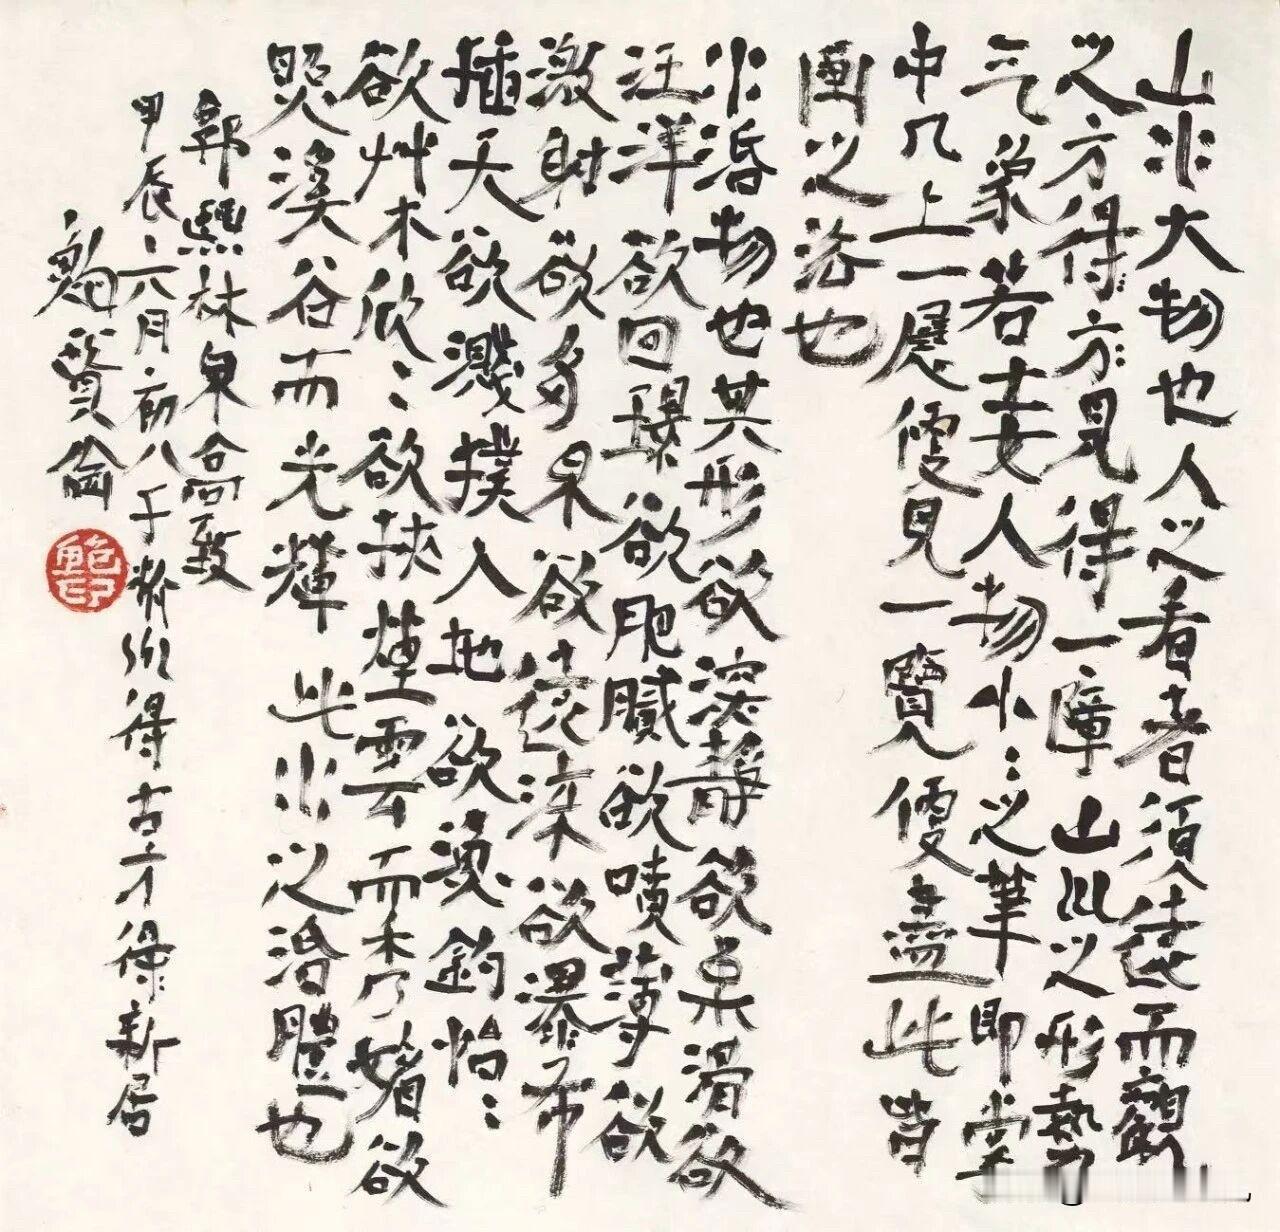 山水大物也人之看者須遠而觀
之方得方見得一障山川之形勢
气象若士女人物小々之筆即掌
中几上一展便見一覽便盡此皆
画之法也
水活物也其形欲深静欲柔滑欲
汪洋欲回環欲肥膩欲噴薄欲
激射欲多泉欲遠流欲瀑布
插天欲濺撲入地欲漁釣怡々
欲艸木欣々欲挾煙雲而秀媚欲
照溪谷而光輝此水之活體也
郭熙林泉高致
甲辰六月初八于州得古才得新居
鮑賢倫
鮑印